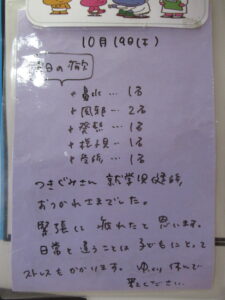 10月19日(木)
今日の病欠
鼻水… 1名
風邪… 2名
発熱… 1名
… 1名
… 1名
つきぐみさん 就学児健診
おつかれさまでした。
緊張して 疲れたと 思います。
日常と違うことは 子どもにとって
ストスもかかります。ゆっくり 休んで
ください